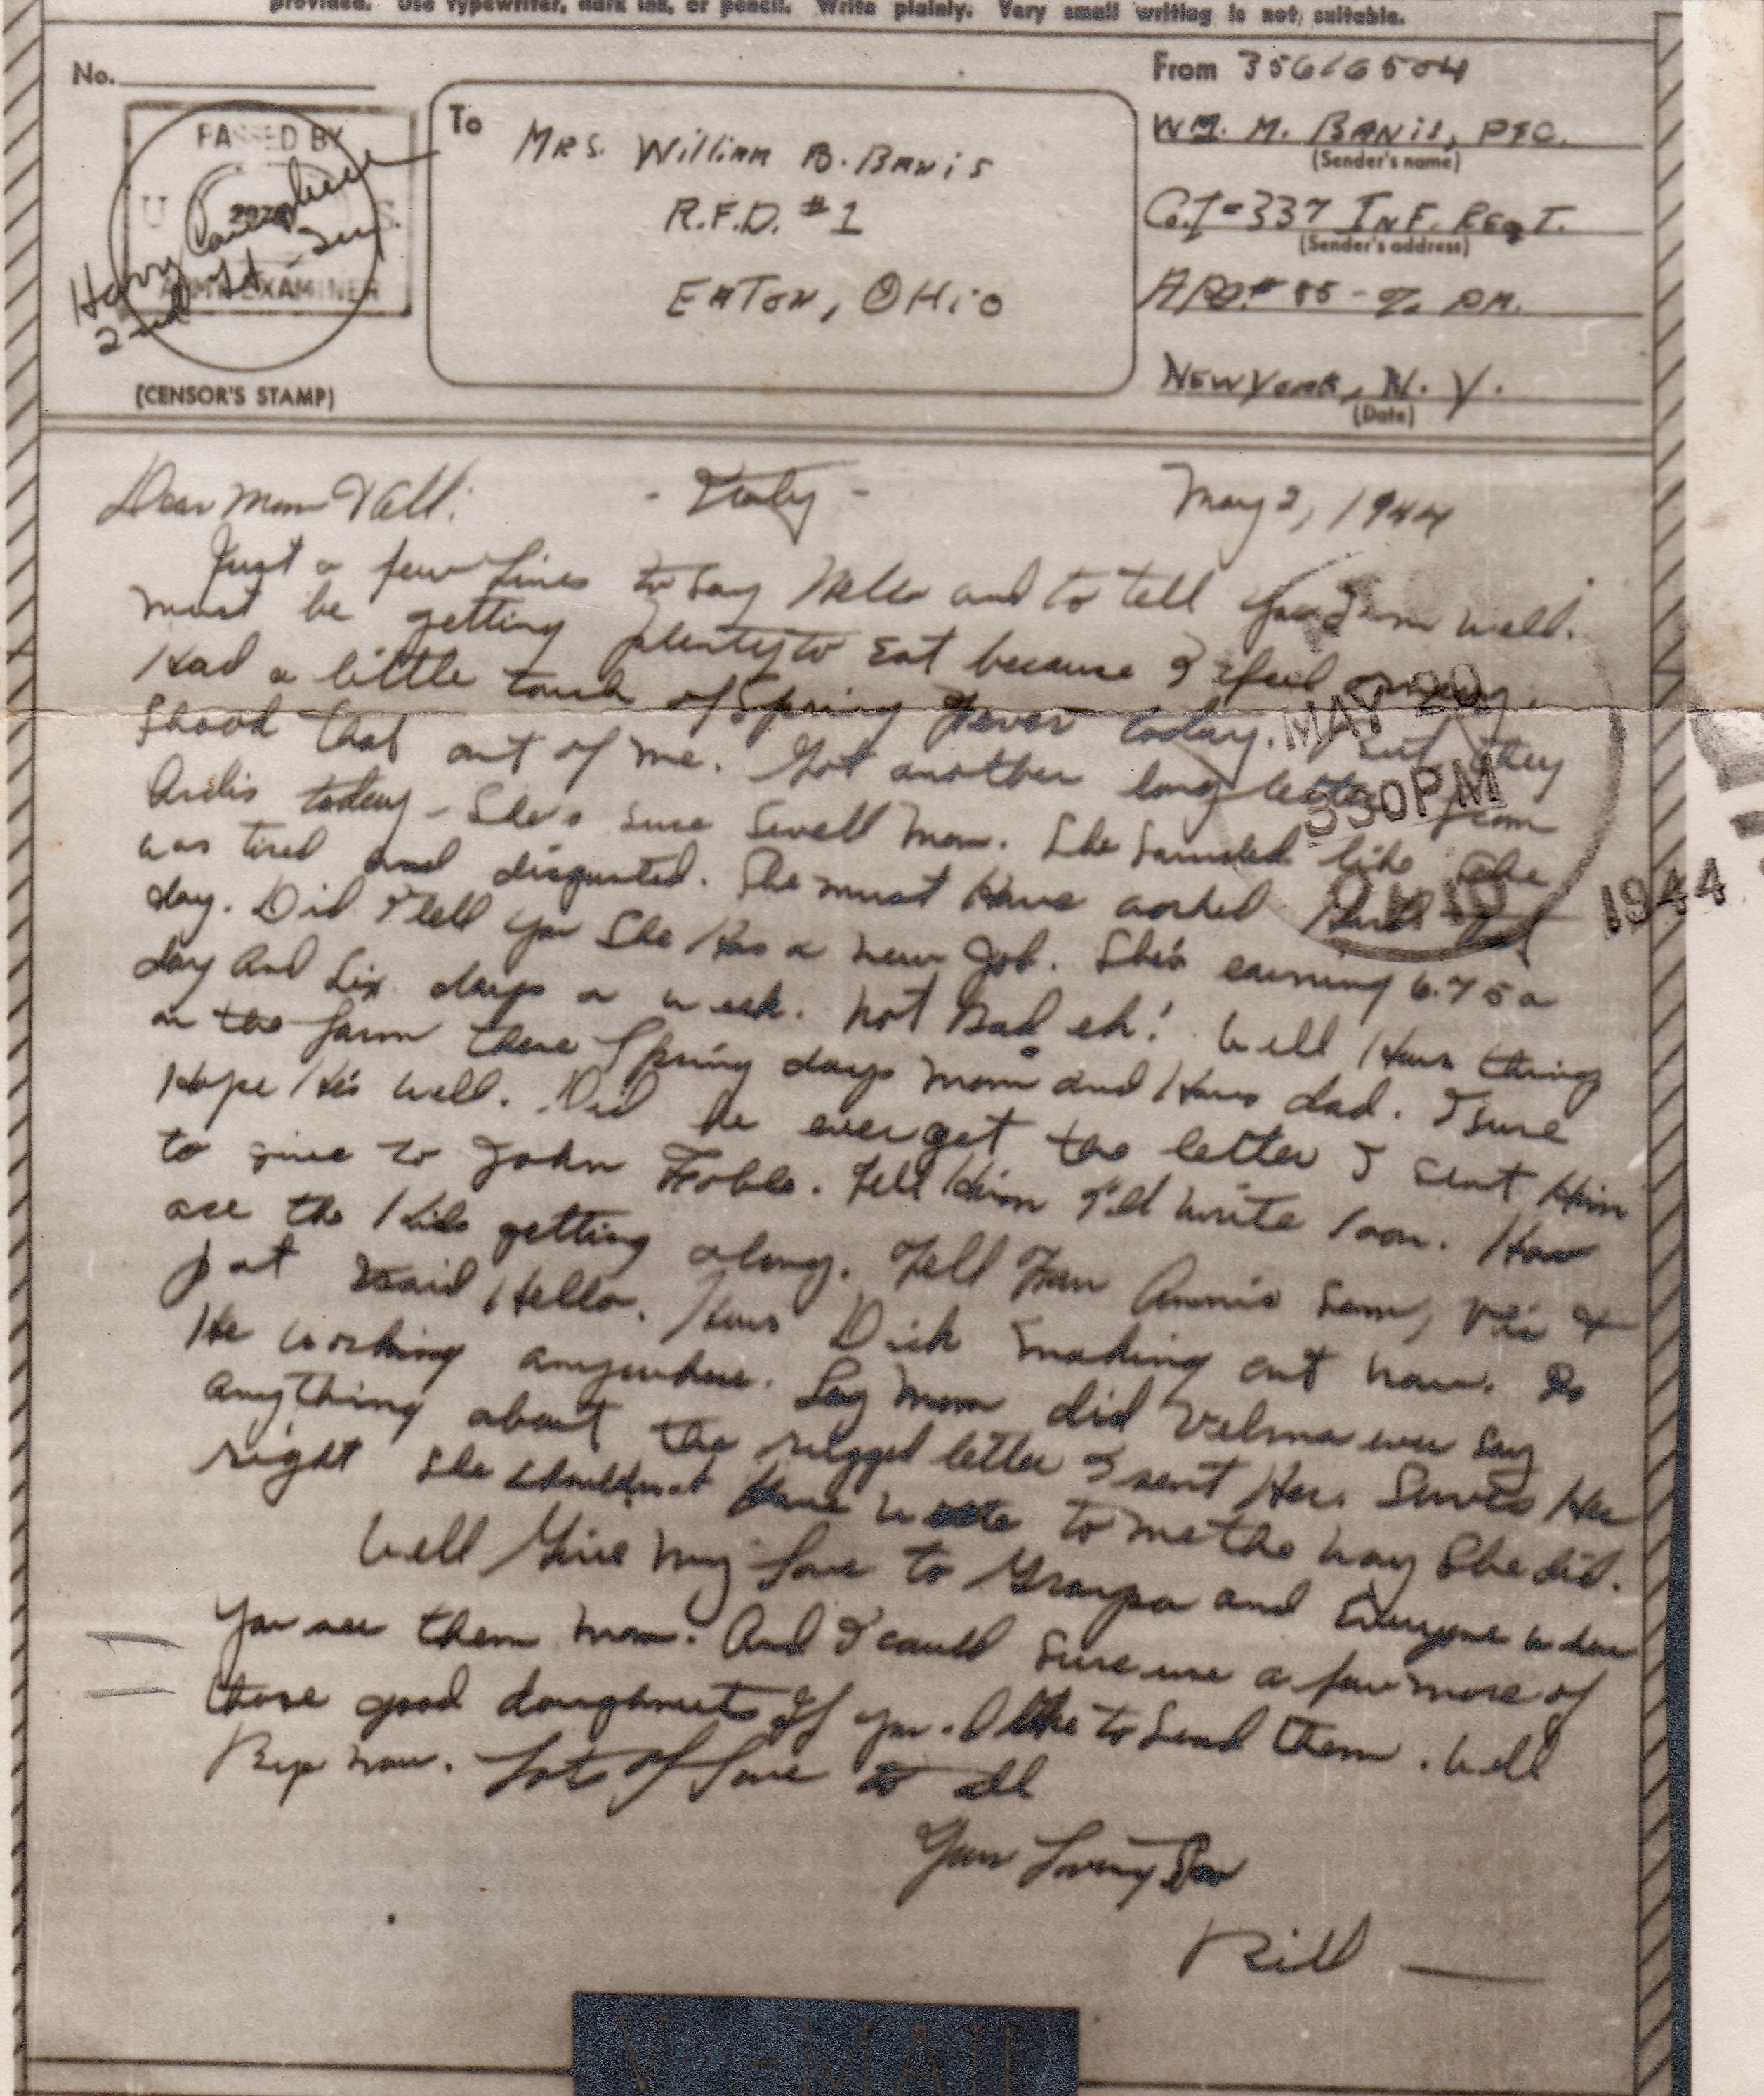 provided. Use typewriter, dark ink, or pencil. Write plainly. Very small writing is not suitable.
No.
PASSED BY
U S
ARMY EXAMINER
Harry
2nd Lt. Inf.
(CENSOR'S STAMP)
To
Mrs. William B. Banis
R.F.D. #1
Eaton, Ohio
From 35616504
Wm. M. Banis, Pfc.
(Sender's name)
Co. I - 337 Inf. Regt.
(Sender's address)
APO # 85 - % PM.
New York, N. Y.
(Date)
Dear Mom & All: - Italy - May 2, 1944
Just a few lines to say Hello and to tell you I am well.
must be getting plenty to eat because I feel
Had a little touch of Spring Fever today. But they
shook that out of me. Got another long letter from
Ardis today - She's sure swell Mom. She sounded like she
was tired and disgusted. She must have worked hard that
day. Did I tell you she has a new job. She's earning 6.75 a
day and six days a week. Not Bad eh! Well Hows things
on the farm these Spring days mom and Hows dad. I sure
Hope He's well. Did he ever get the letter I sent Him
to give to John Foble. Tell Him I'll write soon. How
are the Kids getting along. Tell Fran Annie Sam, Vi &
Pat I said Hello. Hows Dick making out now. Is
He working anywhere. Say Mom did Velma ever say
anything about the rugged letter I sent Her. Serves Her
right she shouldn't have wrote to me the way she did.
Well Give my Love to Grampa and Everyone when
you see them mom. And I could sure use a few more of
those good doughnuts If you like to send them. Well
Bye now. Lots of Love to all
Your Loving Son
Bill
MAY 20
330PM
OHIO
1944
V···—MAIL